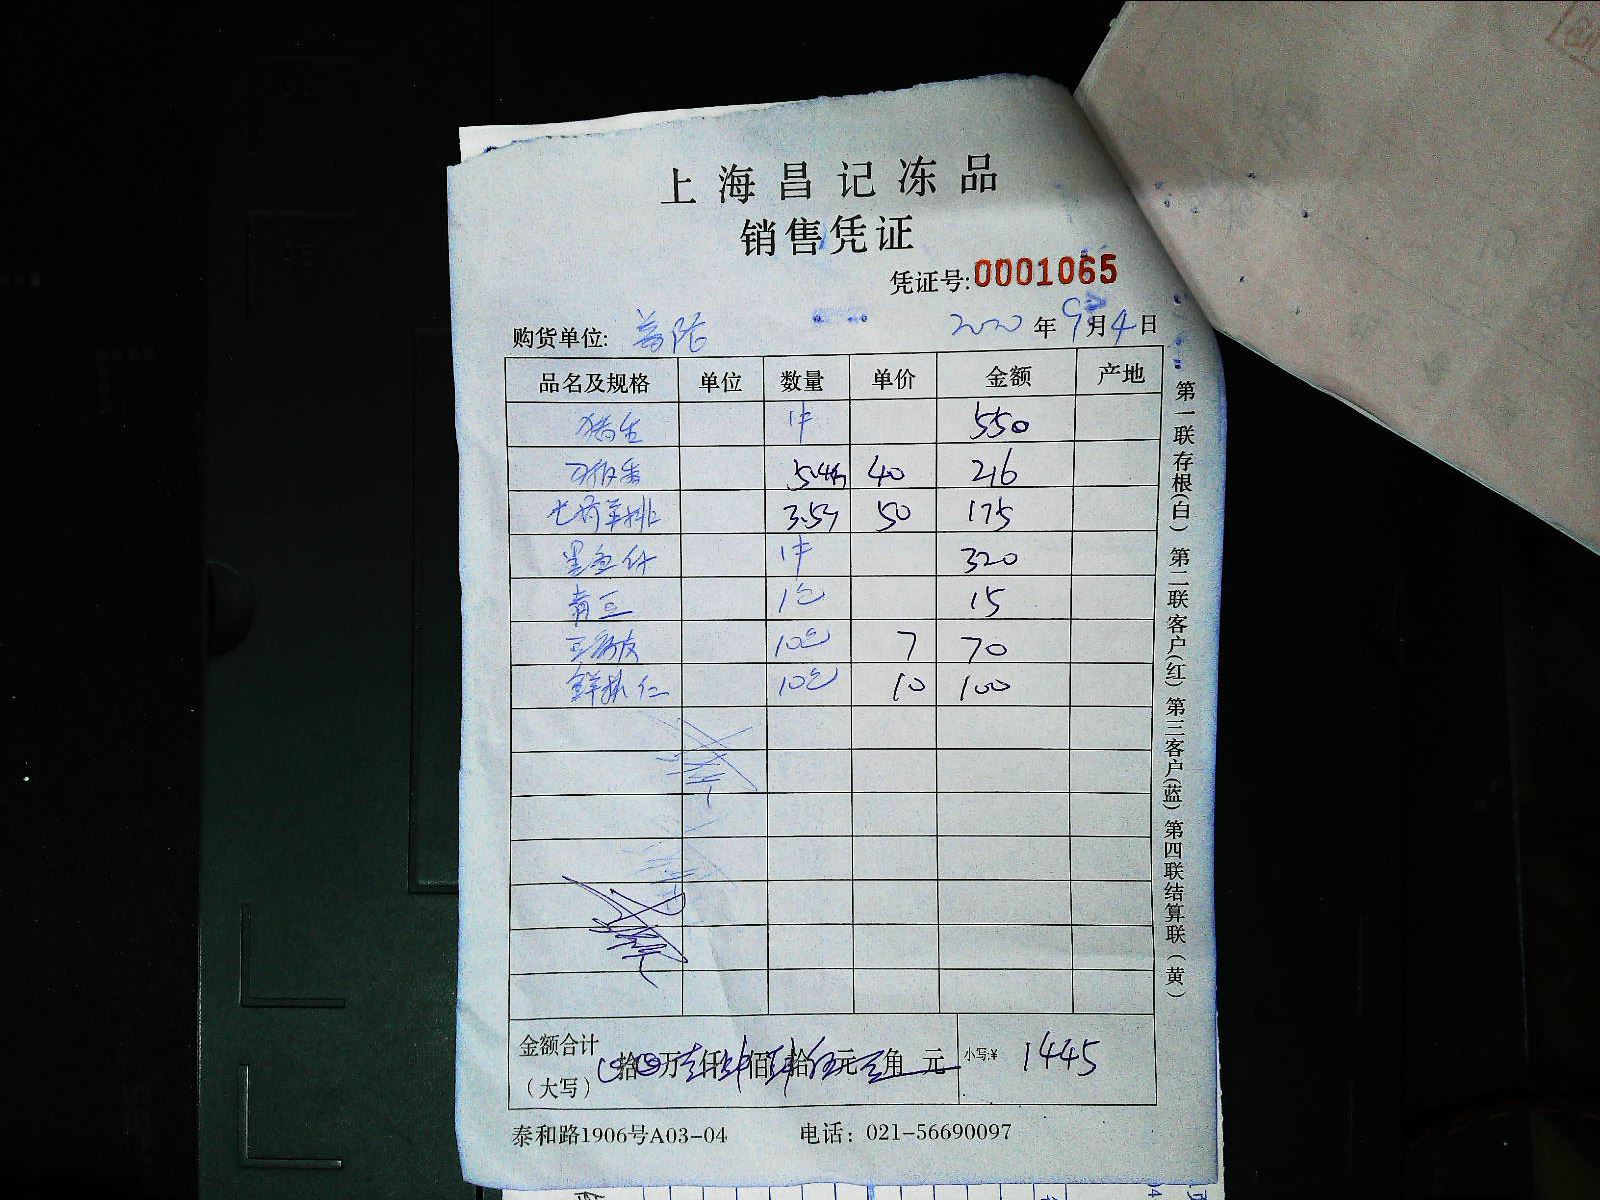 上海昌记冻品
销售凭证
凭证号:0001065
购货单位: 2020年9月4日
品名及规格 单位 数量 单价 金额 产地
1件 550
5.4 40 216
七前羊排 3.5斤 50 175
墨鱼仔 1件 320
青豆 1包 15
豆腐皮 10包 7 70
10包 10 100
金额合计
（大写） 拾 万 仟 佰 拾 元 角 元 小写:¥ 1445
泰和路1906号A03-04 电话：021-56690097
第一联存根(白) 第二联客户(红) 第三客户(蓝) 第四联结算联（黄）